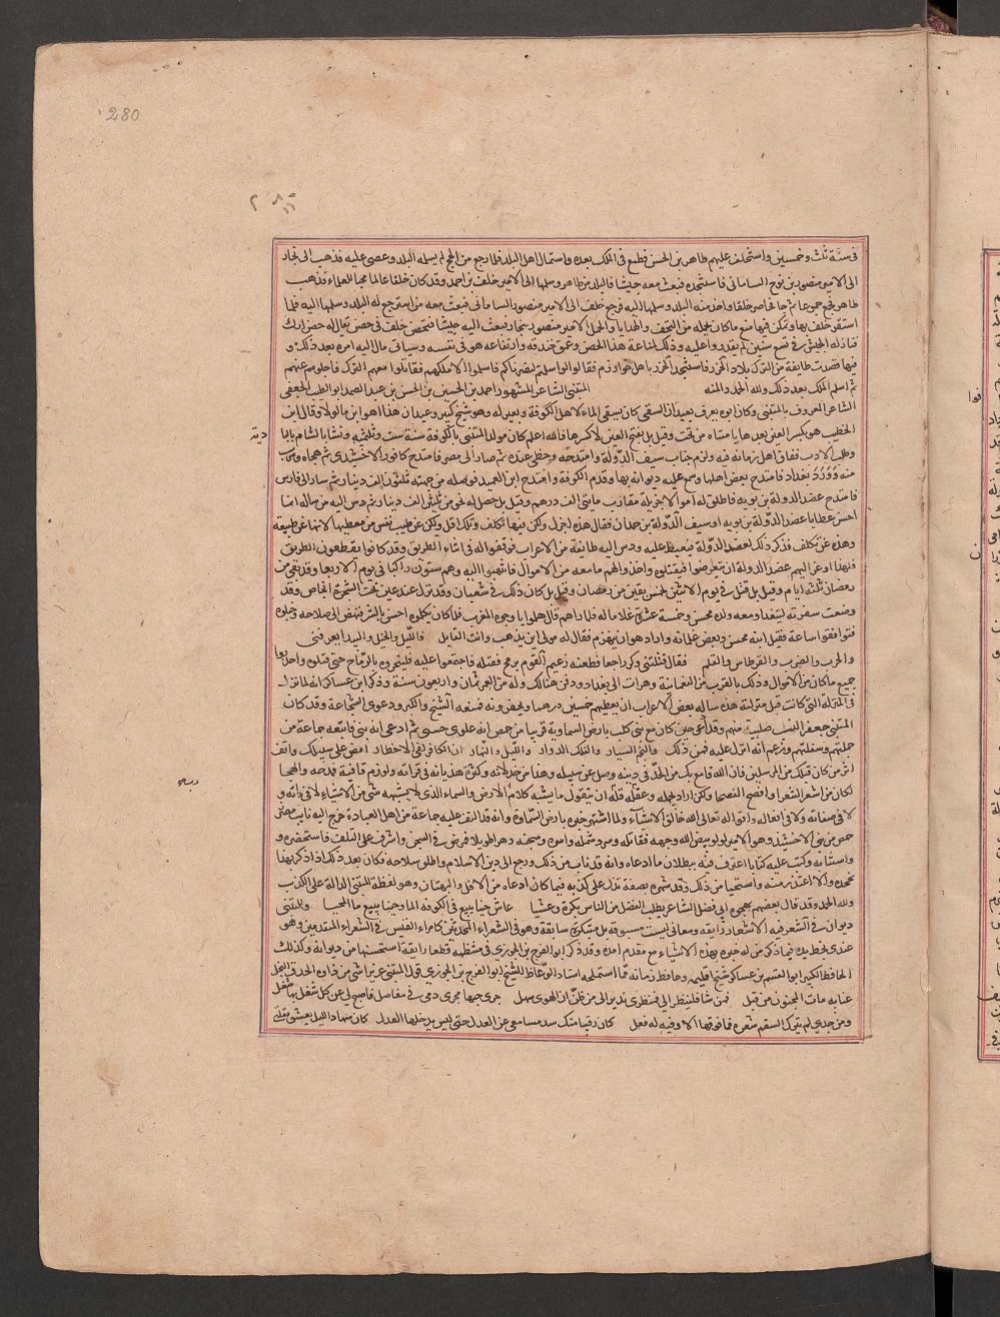 280
في سنة ثلث وخمسين واستخلف عليهم طاهر بن الحسن فطمع في الملك بعده واستمال اهل البلد فلما رجع من الحج لم يسلمه البلد وعصى عليه فذهب الى بخارا
الى الامير منصور بن نوح الساماني فاستنجده فبعث معه جيشا فاستنقذ البلد من طاهر وسلمها الى الامير خلف بن احمد وقد كان خلف عالما محبا للعلماء فذهب
طاهر فجمع جموعا ثم جا فحاصر خلفا واخذ منه البلد وسلمها اليه فرجع خلف الى الامير منصور الساماني فبعث معه من استرجع له البلد وسلمها اليه فلما
استقر خلف بها وتمكن فيها منع ما كان يحمله من التحف والهدايا والخلع الى الامير منصور ببخارا فبعث اليه جيشا فتحصن خلف في حصن يقال له حصن ارك
فنازله الجيش في تسع سنين لم يقدروا عليه وذلك لمناعة هذا الحصن وعمق خندقه وارتفاعه هو في نفسه وسياتي مال اليه امره بعد ذلك و
فيها قصدت طايفة من الترك بلاد الخزر فاستنجد الخزر باهل خوارزم فقالوا لو اسلمتم لنصرناكم فاسلموا الا ملكهم فقاتلوا معهم الترك فاجلوهم عنهم
ثم اسلم الملك بعد ذلك ولله الحمد والمنه المتنبي الشاعر المشهور احمد بن الحسين بن الحسن بن عبد الصمد ابو الطيب الجعفي
الشاعر المعروف بالمتنبي وكان ابوه يعرف بعيدان السقى كان يسقي الماء لاهل الكوفة وهو شيخ كبير وعيدان هذا هو ابن ماكولا وقال ابن
الخطيب هو بكسر العين بعدها يا مثناه من تحت وقيل بل بفتح العين لا كسرها فالله اعلم كان مولد المتنبي بالكوفة سنة ست وثلثمئه ونشا بالشام بالبا
دية
وطلب الادب ففاق اهل زمانه فيه ولزم جناب سيف الدولة وامتدحه وحظي عنده ثم صار الى مصر فامتدح كافور الاخشيدي ثم هجاه وهرب
منه وورد بغداد فامتدح بعض اهلها وسمع عليه ديوانه بها وقدم الكوفة وامتدح ابن العميد فوصله من جهته ثلثون الف دينار ثم سار الى فارس
فامتدح عضد الدولة بن بويه فاطلق له اموالا جزيلة تقارب مايتي الف درهم وقيل بل حصل له نحو من ثلثين الف دينار ثم دس اليه من ساله ايما
احسن عطايا عضد الدولة بن بويه او سيف الدولة بن حمدان فقال هذه اجزل ولكن فيها تكلف وتلك اقل ولكن عن طيب نفس من معطيها لانها عن طبيعة
وهذه عن تكلف فذكر ذلك لعضد الدولة فتغيظ عليه ودس اليه طايفة من الاعراب فوقفوا له في اثناء الطريق وقد كانوا يقطعون الطريق
وضعت سفرته ليتغدا ومعه ولده محسن وخمسة عشرة غلاما له فلما راهم قال هلموا يا وجوه العرب فلما كان يكلموه احسن بالشر فنهض الى سلاحه وخيله
فتوافقوا ساعة فقتل ابنه محسن وبعض غلمانه واراد هو ان ينهزم فقال له مولى اين يذهب وانت القايل فالليل والخيل والبيدا تعرفني
والحرب والضرب والقرطاس والقلم فقال قتلتني وكر راجعا فطعنه زعيم القوم برمح فقتله فاجتمعوا عليه فطعنوه بالرماح حتى قتلوه واخذوا
جميع ما كان من الاموال وذلك بالقرب من النعمانية وهو ات الى بغداد ودفن هنالك وله من العمر ثمان واربعون سنة وذكر ابن عساكر انه لما نزل
في المنزلة التي كانت قبل منزلته هذه ساله بعض الاعراب ان يعطيهم خمسين درهما ويخفرونه فمنعه الشيخ والكبر ودعوى الشجاعة وقد كان
المتنبي جعفر النسب صلبية منهم وقد ادعى حين كان مع بني كلب بارض السماوة قريبا من حمص انه علوي حسني ثم ادعى انه نبي فاتبعه جماعة من
جهلتهم وسفلتهم وزعم انه انزل عليه فمن ذلك والنجم السيار والفلك الدوار والليل والنهار ان الكافر لفي الاخطار امض على سبيلك واقف
اثر من كان قبلك من المرسلين فان الله قامع بك من الحد في دينه وضل عن سبيله وهذا من خذلانه وكثرة هذيانه في قرآنه ولو لزم قافية مدحه والهجا
لكان من اشعر الشعرا وافصح الفصحا ولكن اراد بجهله وقلة عقله ان يقول ما يشبه كلام رب الارض والسماء الذي لا يشبهه شي من الاشياء لا في ذاته و
لا في صفاته ولا في افعاله واقواله تعالى الله خالق الاشياء ولما اشتهر خبره بارض السماوة وانه قد التف عليه جماعة من اهل العبادة خرج اليه نايب حمص
حمص من بني الاخشيد وهو الامير لولو بيض الله وجهه فقاتله وسر وشمله واسره وسجنه دهرا طويلا فمرض في السجن واشرف على التلف فاستحضره و
واستتابه وكتب عليه كتابا اعترف فيه ببطلان ما ادعاه وانه قد تاب من ذلك ورجع الى دين الاسلام واطلق سراحه فكان بعد ذلك اذا ذكر بهذا
يجحده والا اعتذر منه واستحيا من ذلك وقد شهره بصفة تدل على كذبه فيما كان ادعاه من الافك والبهتان وهو لفظة المتنبي الدالة على الكذب
ولله الحمد وقد قال بعضهم يهجوه اي فضل لشاعر يطلب الفضل من الناس بكرة وعشيا عاش حينا يبيع في الكوفة الما وحينا يبيع ما المحيا وللمتنبي
ديوان في الشعر فيه الاشعار رايقه ومعاني ليست مسبوقة بل مبتكرة سابقة وهو في الشعراء المحدثين كامراء القيس في الشعراء المتقدمين وهو
عندي بخط يده فيما ذكر من له خبره بهذه الاشياء مع تقدم امره وقد ذكر ابو الفرج بن الجوزي في منتظمه قطعا رايقة استحسنها من ديوانه وكذلك
الحافظ الكبير ابو القسم بن عساكر شيخ اقليمه وحافظ زمانه فما استملحه استاد الوعاظ الشيخ ابو الفرج بن الجوزي قول المتنبي عزيزا شي من داوه الحدق النجل
عنا به مات المحبون من قبل فمن شا فلينظر الي فمنظري نذير الى من ظن ان الهوى سهل جرى حبها مجرى دمي في مفاصلي فاصبح لي عن كل شغل بها شغل
ومن جسدي لم يترك السقم شعره فما فوقها الا وفيه له فعل كان رقيبا منك سد مسامعي عن العدل حتى ليس يدخلها العدل كان سهاد الليل يعشق مقلتي